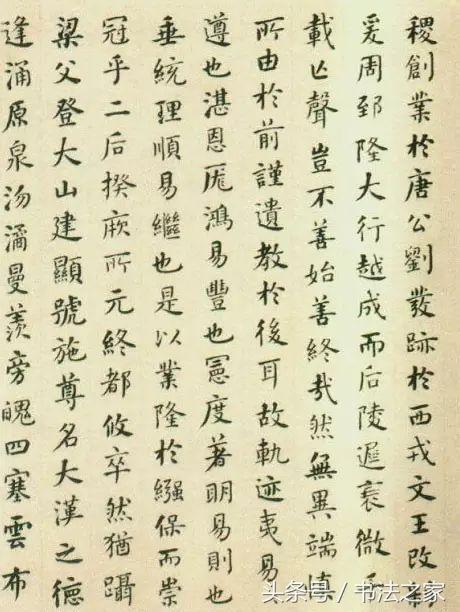 稷創業於唐公劉發跡於西戎文王改
爰周郅隆大行越成而后陵遲衰微
載亡聲豈不善始善終哉然無異端慎
所由於前謹遺教於後耳故軌迹夷易
遵也湛恩厖鴻易豐也憲度著明易則也
垂統理順易繼也是以業隆於繦保而崇
冠乎二后揆厥所元終都攸卒然猶躡
梁父登大山建顯號施尊名大漢之德
逢涌原泉沕潏曼羨旁魄四塞雲布
头条号 / 书法之家